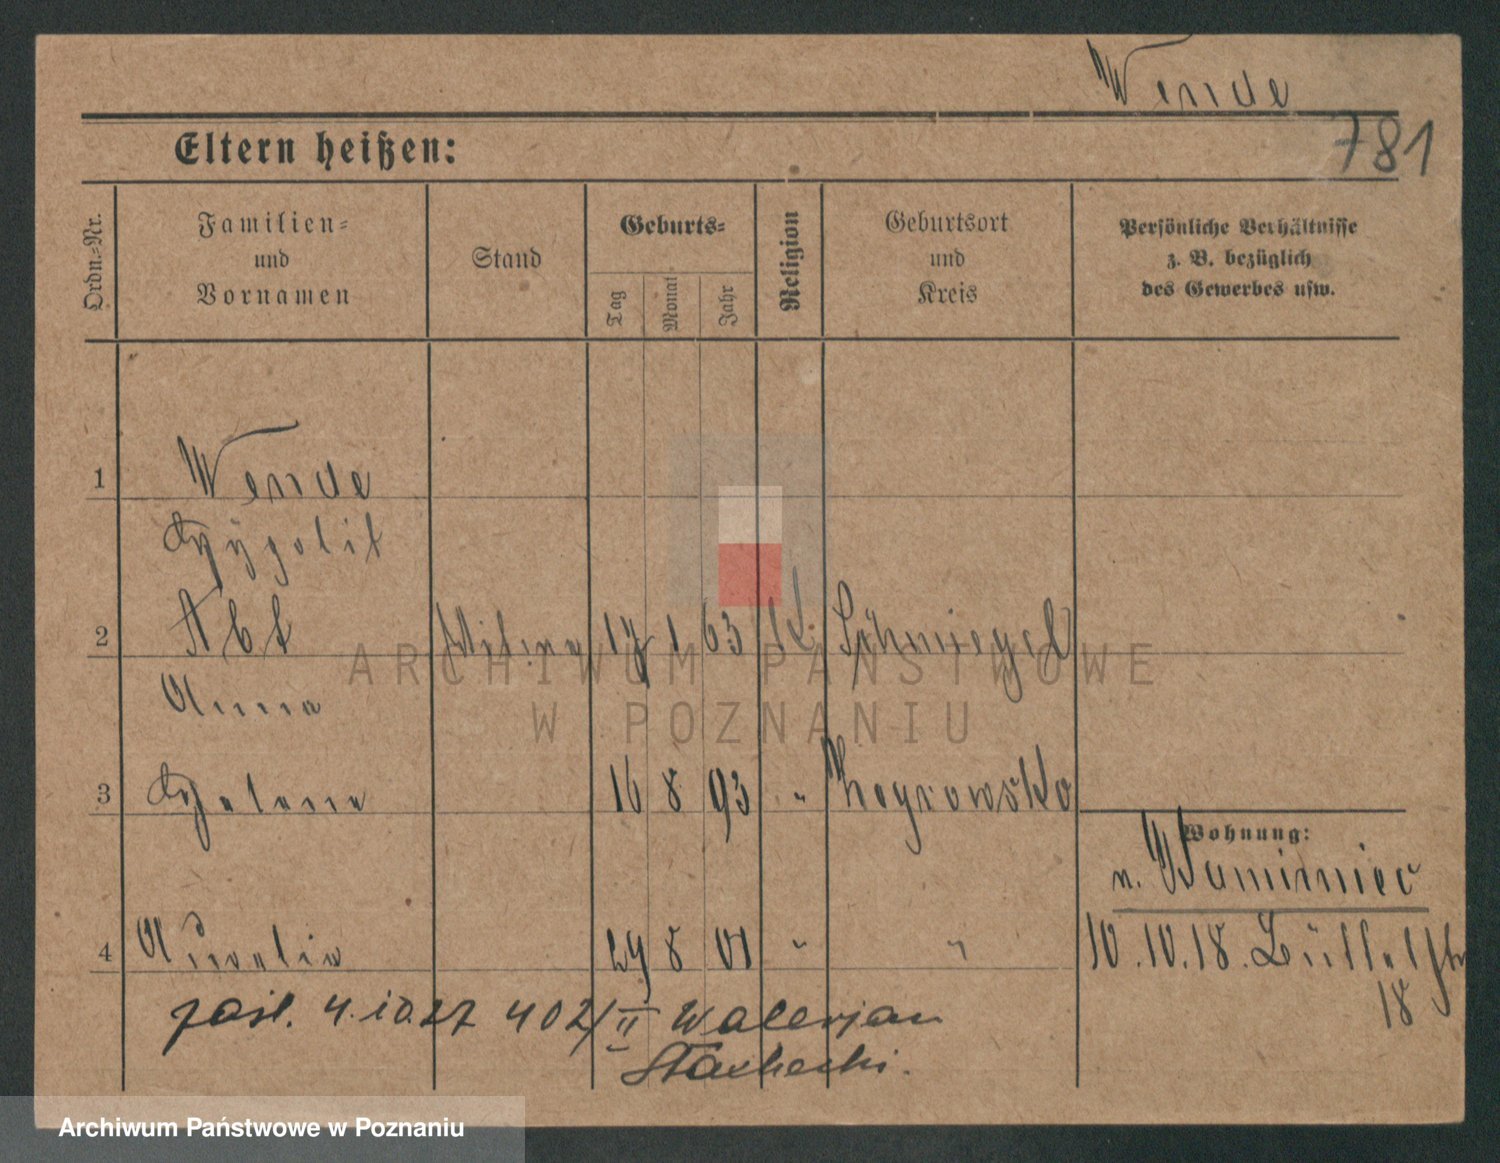 Wende
781
Eltern heißen:
Ordn.-Nr.
Familien-
und
Vornamen
Stand
Geburts-
Tag
Monat
Jahr
Religion
Geburtsort
und
Kreis
Persönliche Verhältnisse
z. B. bezüglich
des Gewerbes usw.
1 Wende
Hypolit
2 Abt 17 1 63 K. Schmiegel
Anna
3 Helene 16 8 93 "
4 29 8 01 " "
Wohnung:
n.
10.10.18.
18
zaśl. 4.10.27 402/II Walerjan
Stachecki.
ARCHIWUM PAŃSTWOWE
W POZNANIU
Archiwum Państwowe w Poznaniu